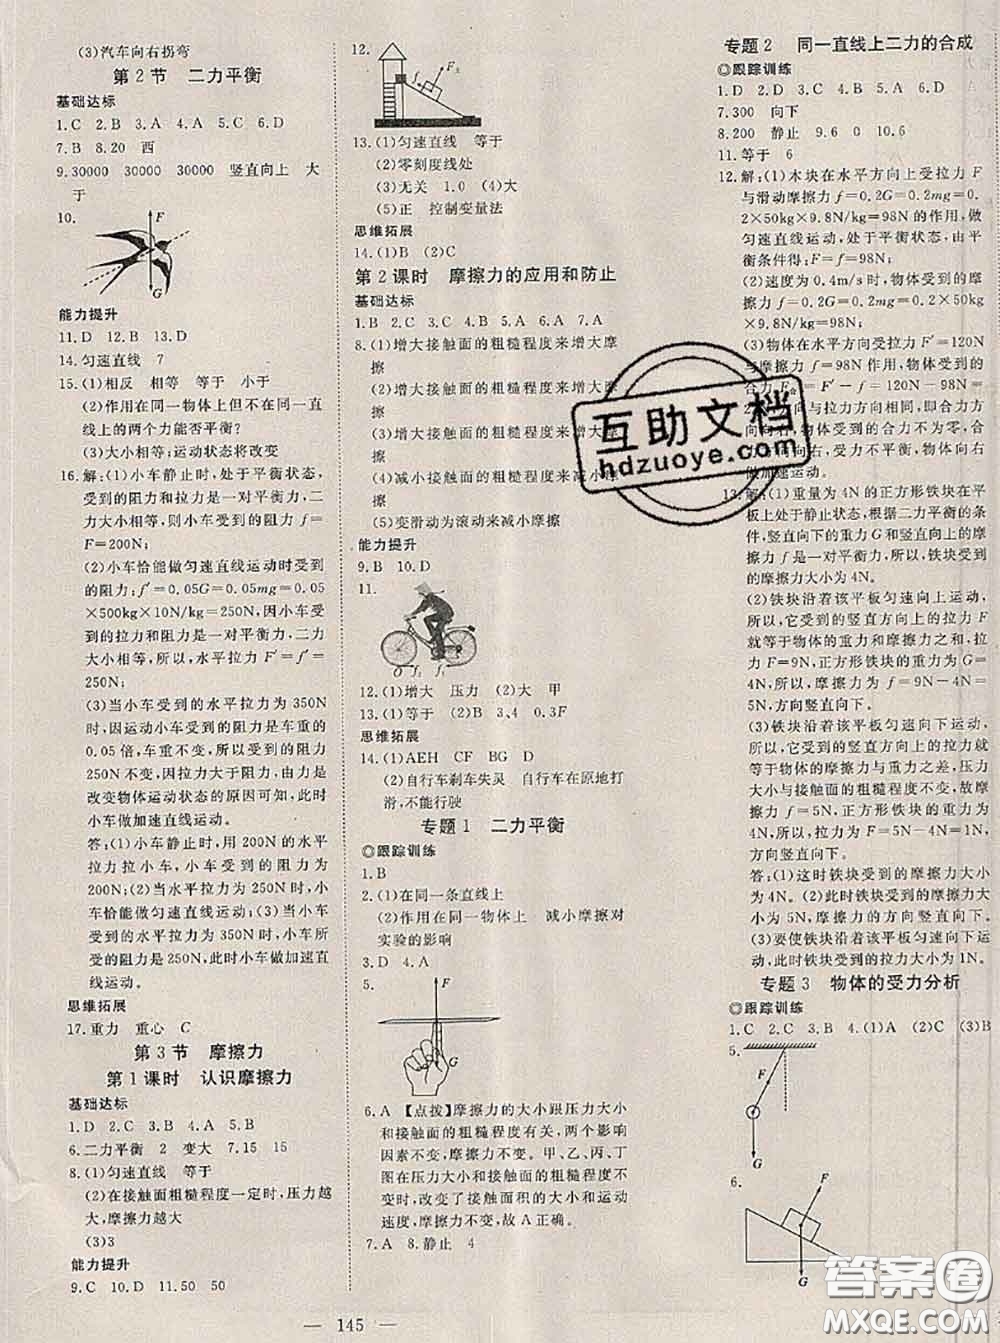 (3)汽车向右拐弯
第2节 二力平衡
基础达标
1.C 2.B 3.A 4.A 5.C 6.D
7.B 8.20 西
9.30000 30000 30000 竖直向上 大
于
10.
F
G
能力提升
11.D 12.B 13.D
14.匀速直线 7
15.(1)相反 相等 等于 小于
(2)作用在同一物体上但不在同一直
线上的两个力能否平衡?
(3)大小相等;运动状态将改变
16.解:(1)小车静止时,处于平衡状态,
受到的阻力和拉力是一对平衡力,二
力大小相等,则小车受到的阻力 f=
F=200N;
(2)小车恰能做匀速直线运动时受到
的阻力:f′=0.05G=0.05mg=0.05
×500kg×10N/kg=250N,因小车受
到的拉力和阻力是一对平衡力,二力
大小相等,所以,水平拉力 F′=f′=
250N;
(3)当小车受到的水平拉力为350N
时,因运动小车受到的阻力是车重的
0.05倍,车重不变,所以受到的阻力
250N不变,因拉力大于阻力,力是
改变物体运动状态的原因可知,此时
小车做加速直线运动。
答:(1)小车静止时,用200N的水平
拉力拉小车,小车受到的阻力是
200N;(2)当水平拉力为250N时,小
车恰能做匀速直线运动;(3)当小车
受到的水平拉力为350N时,小车所
受的阻力是250N,此时小车做加速直
线运动。
思维拓展
17.重力 重心 C
第3节 摩擦力
第1课时 认识摩擦力
基础达标
1.D 2.C 3.A 4.A 5.B
6.二力平衡 2 变大 7.15 15
8.(1)匀速直线 等于
(2)在接触面粗糙程度一定时,压力越
大,摩擦力越大
(3)3
能力提升
9.C 10.D 11.50 50
12.
F支
13.(1)匀速直线 等于
(2)零刻度线处
(3)无关 1.0 (4)大
(5)正 控制变量法
思维拓展
14.(1)B (2)C
第2课时 摩擦力的应用和防止
基础达标
1.B 2.C 3.C 4.D 5.D 6.A 7.A
8.(1)增大接触面的粗糙程度来增大摩
擦
(2)增大接触面的粗糙程度来增大摩
擦
(3)增大接触面的粗糙程度来增大摩
擦
(4)减小接触面的粗糙程度来减小摩
擦
(5)变滑动为滚动来减小摩擦
能力提升
9.B 10.D
11.
O f₁ f₂
12.(1)增大 压力 (2)大 甲
13.(1)等于 (2)B 3.4 0.3F
思维拓展
14.(1)AEH CF BG D
(2)自行车刹车失灵 自行车在原地打
滑,不能行驶
专题1 二力平衡
◎跟踪训练
1.B
2.(1)在同一条直线上
(2)作用在同一物体上 减小摩擦对
实验的影响
3.D 4.A
5.
F
G
6.A 【点拨】摩擦力的大小跟压力大小
和接触面的粗糙程度有关,两个影响
因素不变,摩擦力不变。甲、乙、丙、丁
图在压力大小和接触面的粗糙程度不
变时,改变了接触面积的大小和运动
速度,摩擦力不变,故A正确。
7.A 8.静止 4
专题2 同一直线上二力的合成
◎跟踪训练
1.D 2.D 3.C 4.C 5.A 6.D
7.300 向下
8.200 静止 9.6 0 10.6
11.等于 6
12.解:(1)木块在水平方向上受拉力 F
与滑动摩擦力 f=0.2G=0.2mg=0.
2×50kg×9.8N/kg=98N的作用,做
匀速直线运动,处于平衡状态,由平
衡条件得:F=f=98N;
(2)速度为0.4m/s时,物体受到的摩
擦力 f=0.2G=0.2mg=0.2×50kg
×9.8N/kg=98N;
(3)物体在水平方向受拉力 F′=120N
与摩擦力 f=98N作用,物体受到的
合力 F合=F′-f=120N-98N=
22N,方向与拉力方向相同,即合力方
向向右,物体受到的合力不为零,合
力方向向右,受力不平衡,物体向右
做加速运动。
13.解:(1)重量为4N的正方形铁块在平
板上处于静止状态,根据二力平衡的条
件,竖直向下的重力G和竖直向上的摩
擦力 f 是一对平衡力,所以,铁块受到
的摩擦力大小为4N。
(2)铁块沿着该平板匀速向上运动,
所以,它受到的竖直方向向上的拉力 F
就等于物体的重力和摩擦力之和,拉
力 F=9N,正方形铁块的重力为G=
4N,所以,铁块受到的摩擦力的大小
为5N。
(3)铁块沿着该平板匀速向下运动,
所以,它受到的竖直方向上的拉力的
大小等于摩擦力与重力之差,压力的
大小和接触面的粗糙程度不变,故摩
擦力 f=5N,正方形铁块的重力为
4N,所以,拉力为 F=5N-4N=1N,
方向竖直向下。
答:(1)这时铁块受到的摩擦力大小
为4N;(2)此时铁块受到的摩擦力大
小为5N,摩擦力的方向竖直向下;
(3)要使铁块沿着该平板匀速向下运
动,铁块受到的拉力大小为1N。
专题3 物体的受力分析
◎跟踪训练
1.C 2.C 3.C 4.(1)A (2)C (3)B
5.
F
G
6.
F
G
— 145 —
互助文档
hdzuoye.com
答案圈
MXQE.COM